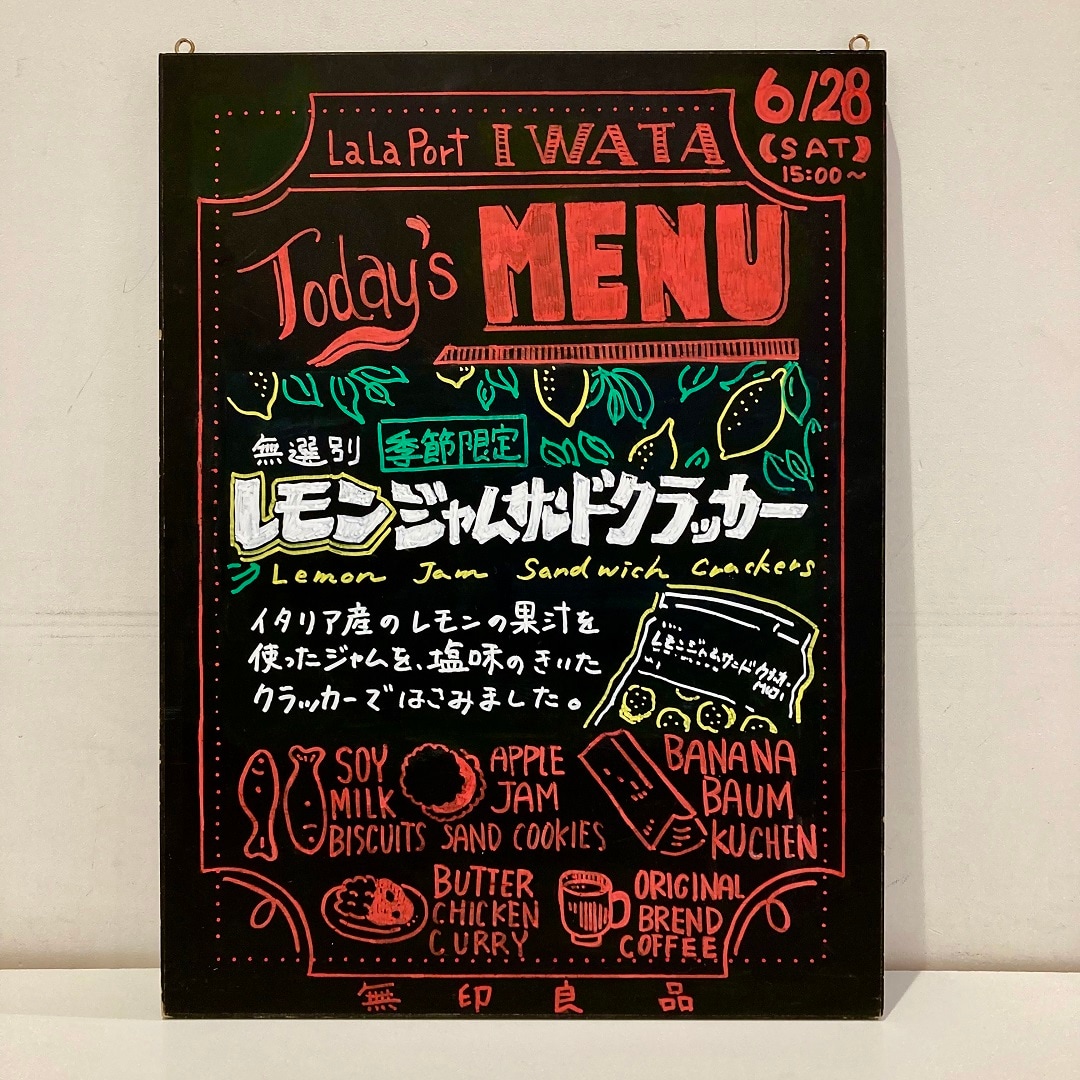 6/28
(SAT)
15:00~
LaLaPort IWATA
Today's MENU
無選別 季節限定
レモンジャムサンドクラッカー
Lemon Jam Sandwich Crackers
イタリア産のレモンの果汁を
使ったジャムを、塩味のきいた
クラッカーではさみました。
レモンジャムサンドクラッカー
MUJI
SOY
MILK
BISCUITS
APPLE
JAM
SAND COOKIES
BANANA
BAUM
KUCHEN
BUTTER
CHICKEN
CURRY
ORIGINAL
BREND
COFFEE
無印良品